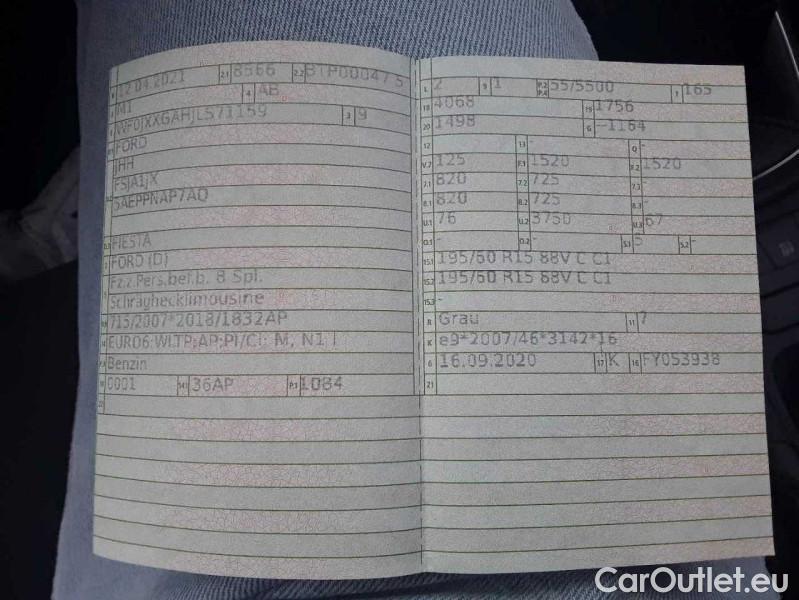 B 12.04.2021 2.1 8566 2.2 BTP000475
J M1 4 AB
E WF0JXXGAHJLS71159 3 9
D.1 FORD
JHH
D.2 FSJA1JX
5AEPPNAP7AQ
D.3 FIESTA
2 FORD (D)
5 Fz.z.Pers.bef.b. 8 Spl.
Schräghecklimousine
V.9 715/2007*2018/1832AP
14 EURO6;WLTP;AP;PI/CI; M, N1 I
P.3 Benzin
10 0001 14.1 36AP P.1 1084
22
L 2 9 1 P.2 P.4 55/5500 T 165
18 4068 19 1756
20 1498 G -1164
12 - 13 - Q -
V.7 125 F.1 1520 F.2 1520
7.1 820 7.2 725 7.3 -
8.1 820 8.2 725 8.3 -
U.1 76 U.2 3750 U.3 67
O.1 - O.2 - S.1 5 S.2 -
15.1 195/60 R15 88V C C1
15.2 195/60 R15 88V C C1
15.3 -
R Grau 11 7
K e9*2007/46*3142*16
6 16.09.2020 17 K 16 FY053938
21
CarOutlet.eu